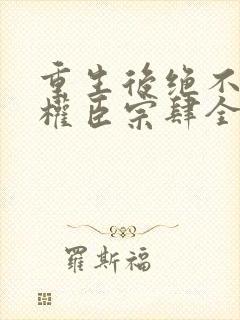 重生後绝不
權臣宗肆全
羅斯福